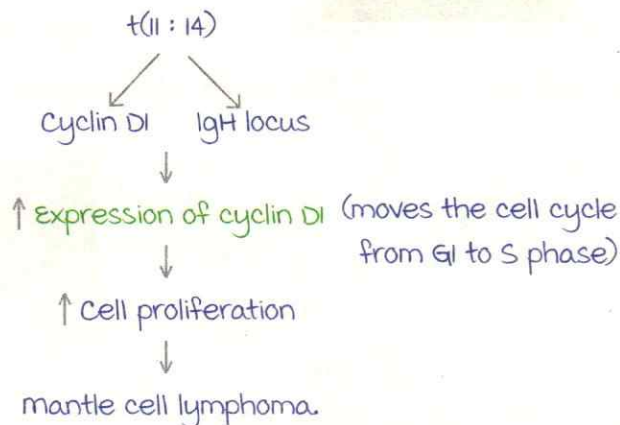 t(11 : 14)
Cyclin D1 IgH locus
↑ Expression of cyclin D1 (moves the cell cycle
from G1 to S phase)
↑ Cell proliferation
mantle cell lymphoma.